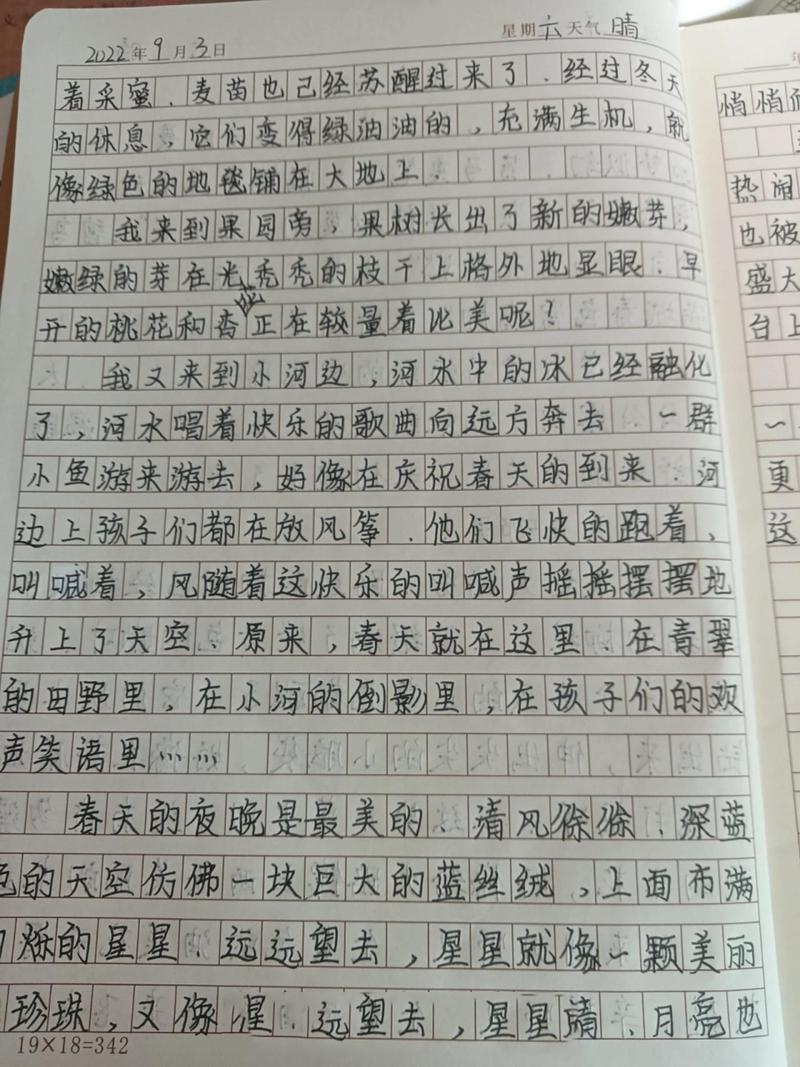 2022年9月3日 星期六天气晴
着采蜜.麦苗也已经苏醒过来了.经过冬天
的休息,它们变得绿油油的,充满生机,就
像绿色的地毯铺在大地上.
我来到果园旁,果树长出了新的嫩芽,
嫩绿的芽在光秃秃的枝干上格外地显眼.早
开的桃花和杏花正在较量着比美呢?
我又来到小河边,河水中的冰已经融化
了,河水唱着快乐的歌曲向远方奔去.一群
小鱼游来游去,好像在庆祝春天的到来.河
边上孩子们都在放风筝.他们飞快的跑着,
叫喊着,风随着这快乐的叫喊声摇摇摆摆地
升上了天空.原来,春天就在这里.在青翠
的田野里,在小河的倒影里,在孩子们的欢
声笑语里……
春天的夜晚是最美的.清风徐徐.深蓝
色的天空仿佛一块巨大的蓝丝绒,上面布满
烁的星星.远远望去,星星就像一颗美丽
珍珠,又像.远望去,星星睛.月亮也
19×18=342
悄悄
热闹
也被
盛大
台上
一
更
这